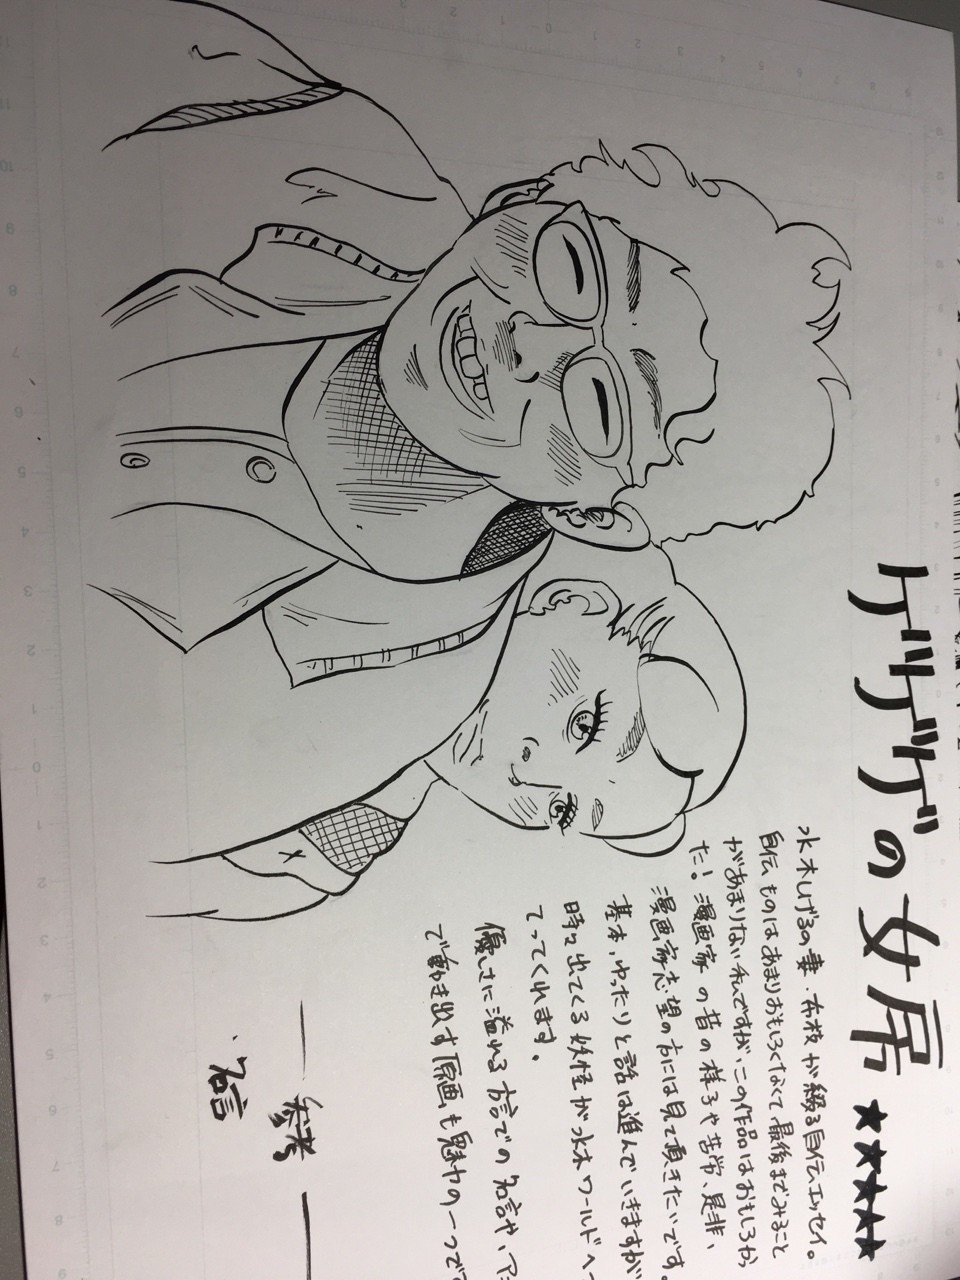 ゲゲゲの女房 ★★★★★
水木しげるの妻・布枝が綴る自伝エッセイ。
自伝ものはあまりおもしろくなくて、最後までみること
があまりない私ですが、この作品はおもしろか
た！漫画家の昔の様子や苦労、是非、
漫画家志望の方には見て頂きたいです。
基本、ゆったりと話は進んでいきますが
時々出てくる妖怪が水木ワールドへ
てってくれます。
優しさに溢れる方言での名言や、ア
で動き出す原画も魅力の一つで
参考
・名言